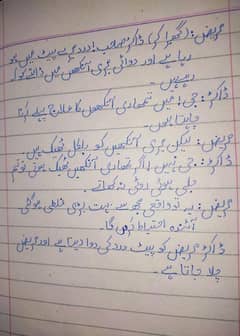 مریض: (گھبرا کر) ڈاکٹر صاحب! درد میرے پیٹ میں ہو
رہا ہے اور دوائی میری آنکھوں میں ڈالنے کو کہہ
رہے ہیں۔
ڈاکٹر: جی! میں تمھاری آنکھوں کا علاج پہلے کرنا
چاہتا ہوں۔
مریض: لیکن میری آنکھیں تو بالکل ٹھیک ہیں۔
ڈاکٹر: جی نہیں! اگر تمھاری آنکھیں ٹھیک ہوتیں تو تم
جلی ہوئی روٹی نہ کھاتے۔
مریض: یہ تو واقعی مجھ سے بہت بڑی غلطی ہو گئی
آئندہ احتیاط کروں گا۔
ڈاکٹر مریض کو پیٹ درد کی دوا دیتا ہے اور مریض
چلا جاتا ہے۔